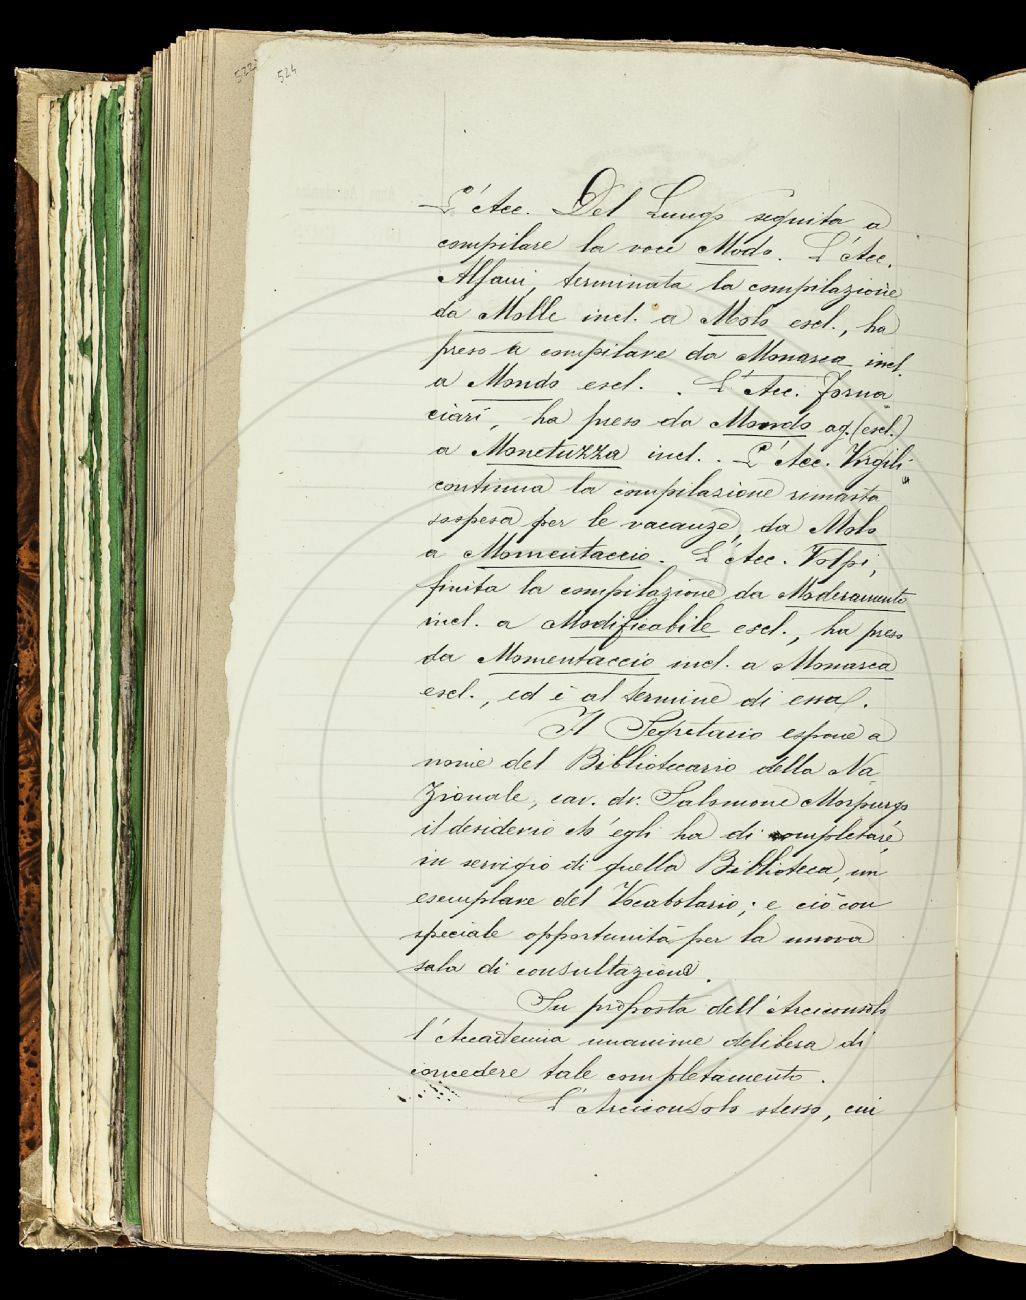 522
524
L'Acc. Del Lungo seguita a
compilare la voce Modo. L'Acc.
Alfani, terminata la compilazione
da Molle incl. a Molo escl., ha
preso a compilare da Monarca incl.
a Mondo escl.. L'Acc. Forna
ciari, ha preso da Mondo ag. (escl.)
a Monetuzza incl.. L'Acc. Virgili
continua la compilazione rimasta
sospesa per le vacanze, da Molo
a Momentaccio. L'Acc. Volpi,
finita la compilazione da Moderamento
incl. a Modificabile escl., ha preso
da Momentaccio incl. a Monarca
escl., ed è al termine di essa.
Il Segretario espone a
nome del Bibliotecario della Na
zionale, cav. dr. Salomone Morpurgo
il desiderio ch'egli ha di completare,
in servigio di quella Biblioteca, un
esemplare del Vocabolario; e ciò con
speciale opportunità per la nuova
sala di consultazione.
Su proposta dell'Arciconsolo
l'Accademia unanime delibera di
concedere tale completamento.
L'Arciconsolo stesso, cui